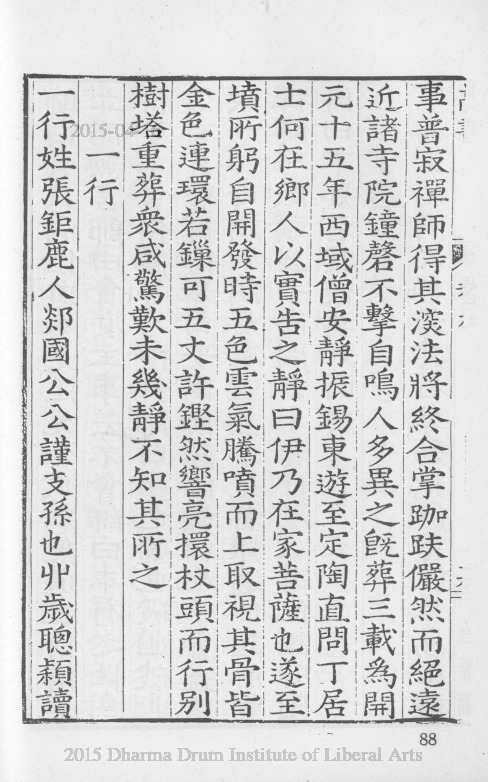 事普寂禪師得其深法將終合掌跏趺儼然而絕遠
近諸寺院鐘磬不擊自鳴人多異之既葬三載為開
元十五年西域僧安靜振錫東遊至定陶直問丁居
士何在鄉人以實告之靜曰伊乃在家菩薩也遂至
墳所躬自開發時五色雲氣騰噴而上取視其骨皆
金色連環若鏁可五丈許鏗然響亮擐杖頭而行別
樹塔重葬衆咸驚歎未幾靜不知其所之
一行
一行姓張鉅鹿人郯國公公謹支孫也丱歲聰穎讀
88
2015 Dharma Drum Institute of Liberal Arts